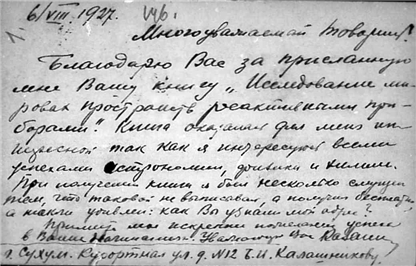 6/VIII 1927.
Многоуважаемый Товарищ!
Благодарю Вас за присланную
мне Вашу книгу „Исследование ми-
ровых пространств реактивными при-
борами". Книга оказалась для меня ин-
тересной так как я интересуюсь всеми
успехами астрономии, физики и химии.
При получении книги я был несколько смущен
тем, что таковой не выписывал, а получил бесплатно,
а также удивлен: как Вы узнали мой адрес?
Примите мои искренние пожелания успеха
в Ваших начинаниях. Уважающий Вас
г. Сухум. Курортная ул. д. №12 Б. И. Калашникову